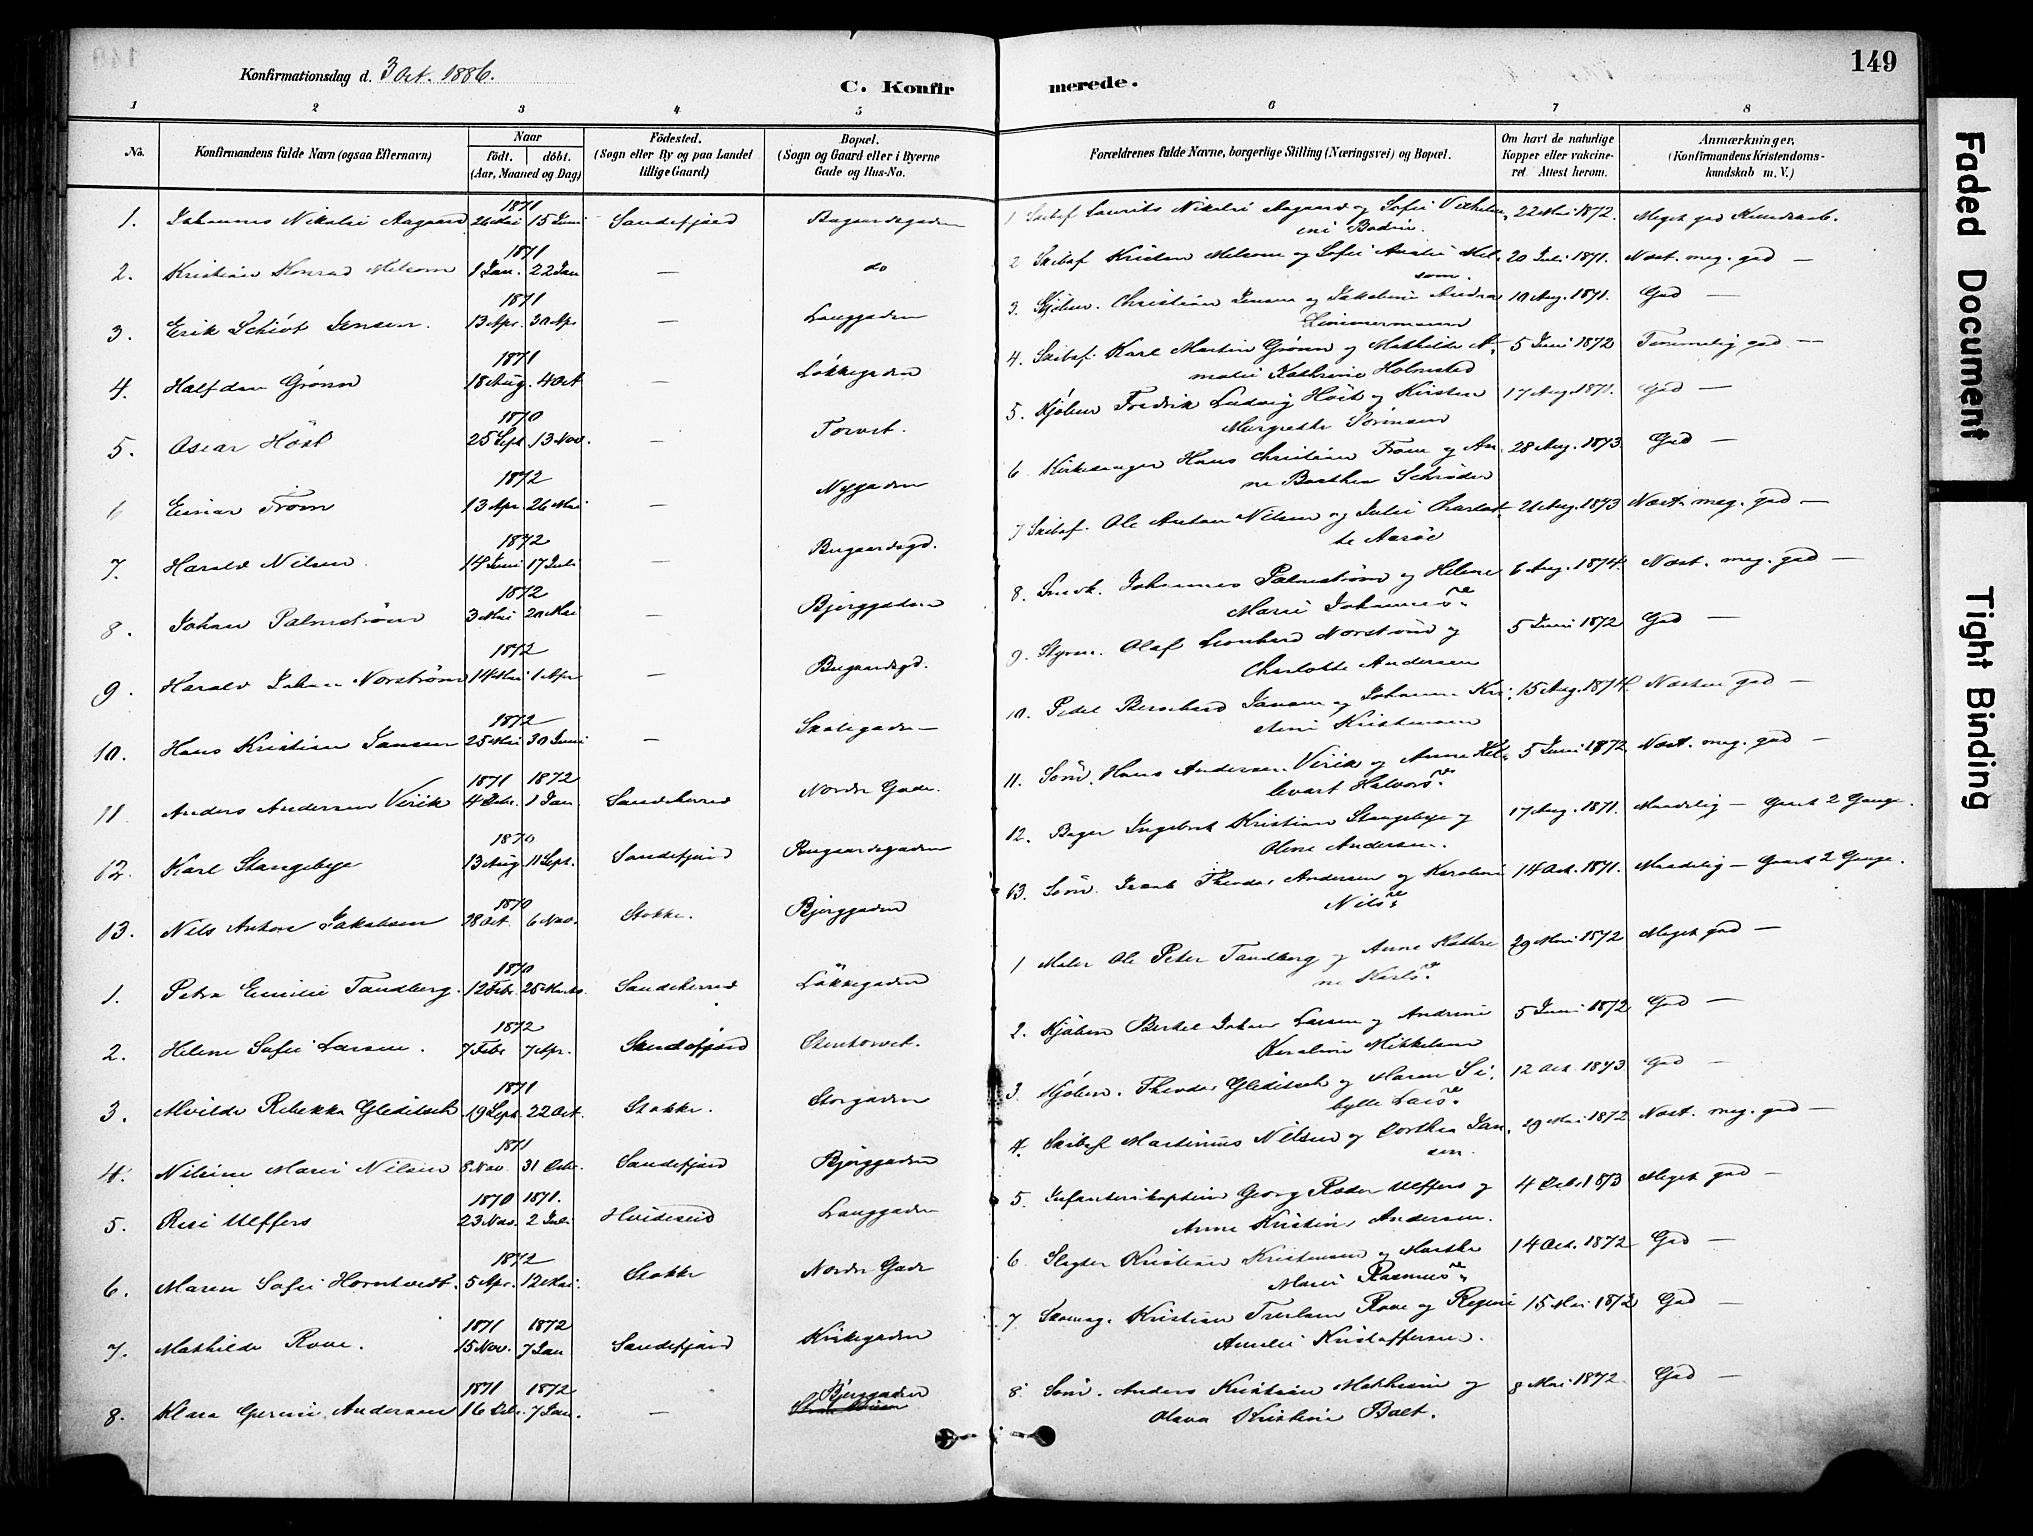 149
Konfirmationsdag d. 3 Oct. 1886.
C. Konfirmerede.
1 2 3 4 5 6 7 8
No.
Konfirmandens fulde Navn (ogsaa Efternavn)
Naar
født. døbt.
(Aar, Maaned og Dag)
Fødested.
(Sogn eller By og paa Landet
tillige Gaard)
Bopæl.
(Sogn og Gaard eller i Byerne
Gade og Hus-No.
Forældrenes fulde Navne, borgerlige Stilling (Næringsvei) og Bopæl.
Om havt de naturlige
Kopper eller vakcine-
ret. Attest herom.
Anmærkninger.
(Konfirmandens Kristendoms-
kundskab m. V.)
1871
1. Johannes Nikolai Aagaard 26 Mai 15 Juni Sandefjord Bugaardsgaden 1 Skibsf. Laurits Nikolai Aagaard og Sofie Vilhelm- 22 Mai 1872. Meget god Kundskab.
ine Bodin.
1871
2. Kristian Konrad Melsom 1 Jan. 22 Jan — do 2 Skibsf. Kristen Melsom og Sofie Amalie Mel- 20 Juli 1871. Næst. meg. god —
som.
1871
3. Erik Schiöt Jensen. 13 Apr. 30 Apr — Langgaden 3. Kjøbm. Christian Jensen og Jakobine Andrea 10 Aug. 1871. God —
Zimmermann
1871
4. Halfdan Grønn 18 Aug. 4 Oct — Løkkegaden 4. Skibsf. Karl Martin Grønn og Mathilde A- 5 Juni 1872 Temmelig god —
malie Kathrine Holmsted
1870
5. Oscar Höst 25 Sept 13 Nov. — Torvet. 5. Kjøbm Fredrik Ludvig Höst og Kirsten 17 Aug. 1871. God —
Margrethe Sörensen
1872
6 Einar Trøm 13 Apr. 26 Mai — Nygaden 6 Kirkesanger Hans Christian Trøm og An- 28 Aug. 1873 God —
ne Barthea Schrøder
1872
7. Harald Nilsen. 14 Juni 17 Juli — Bugaardsgd. 7 Skibsf. Ole Anton Nilsen og Julie Charlot- 21 Aug. 1873 Næst. meg. god —
te Aarøe
1872
8. Johan Palmstrøm 3 Mai 20 Mai — Bjerggaden 8. Snedk. Johannes Palmstrøm og Helene 6 Aug. 1874. Næst. meg. god —
Marie Johannes
1872
9. Harald Johan Norstrøm 14 Mai 1 Apr — Bugaardsgd. 9. Styrm. Olaf Leonhard Norstrøm og 5 Juni 1872 God —
Charlotte Andersen
1872
10. Hans Kristian Jansen 25 Mai 30 Juni — Skolegaden 10. Pedel Bernhard Jansen og Johanne Kri- 15 Aug. 1874. Næsten god —
stine Kristensen
1871 1872
11. Anders Andersen Virik 4 Decbr. 1 Jan Sandeherred Nordre Gade. 11. Søm. Hans Andersen Virik og Anne Hel- 5 Juni 1872 Næst. meg. god —
levart Halvors
1870
12. Karl Stangebye 13 Aug. 11 Sept. Sandefjord Bugaardsgaden 12. Bager Ingebret Kristian Stangebye og 17 Aug. 1871. Maadelig — Gaaet 2 Gange.
Oline Andersen.
1870
13. Nils Anton Jakobsen 28 Oct. 6 Nov. Stokke. Bjerggaden 13. Søm. Isaak Theodor Andersen og Karoline 14 Oct. 1871. Maadelig — Gaaet 2 Gange.
Nils
1870
1. Petra Emilie Tandberg. 12 Febr. 25 Marts. Sandeherred Løkkegaden 1 Maler Ole Peter Tandberg og Anne Kathri- 29 Mai 1872 Meget god —
ne Karls
1872
2. Helene Sofie Larsen. 7 Febr 7 Apr. Sandefjord Stentorvet. 2. Kjøbm Berthel Johan Larsen og Andrine 5 Juni 1872 God —
Karoline Mikkelsen
1871
3. Alvilde Rebekka Gleditsch 19 Sept 22 Oct. Stokke. Storgaden 3 Kjøbm. Theodor Gleditsch og Maren Si- 12 Oct. 1873 God —
bylle Lars
1871
4. Nilsine Marie Nilsen 8 Nov. 31 Decbr. Sandefjord Bjerggaden 4. Skibsf Martinius Nilsen og Dorthea Jan- 29 Mai 1872 Næst. meg. god —
sen.
1870 1871.
5. Risi Ulffers 23 Nov. 2 Juli Hvideseid Langgaden 5 Infanterikaptein Georg Ræder Ulffers og 4 Oct. 1873 Meget god —
Anne Kristine Andersen.
1872
6. Maren Sofie Horntvedt. 5 Apr. 12 Mai. Stokke Nordre Gade 6 Slagter Kristian Kristensen og Marthe 14 Oct. 1872 God —
Marie Rasmus
1871 1872
7. Mathilde Rove. 15 Nov. 7 Jan Sandefjord Kirkegaden 7 Skomag. Kristian Trulsen Rove og Regine 15 Mai 1872 God —
Amalie Kristoffersen.
1871 1872
8. Klara Gurine Andersen 16 Decbr. 7 Jan. — Bjerggaden 8 Søm. Anders Kristian Mathisen og 8 Mai 1872. God —
Olava Kristine Bolt.
Faded Document
Tight Binding